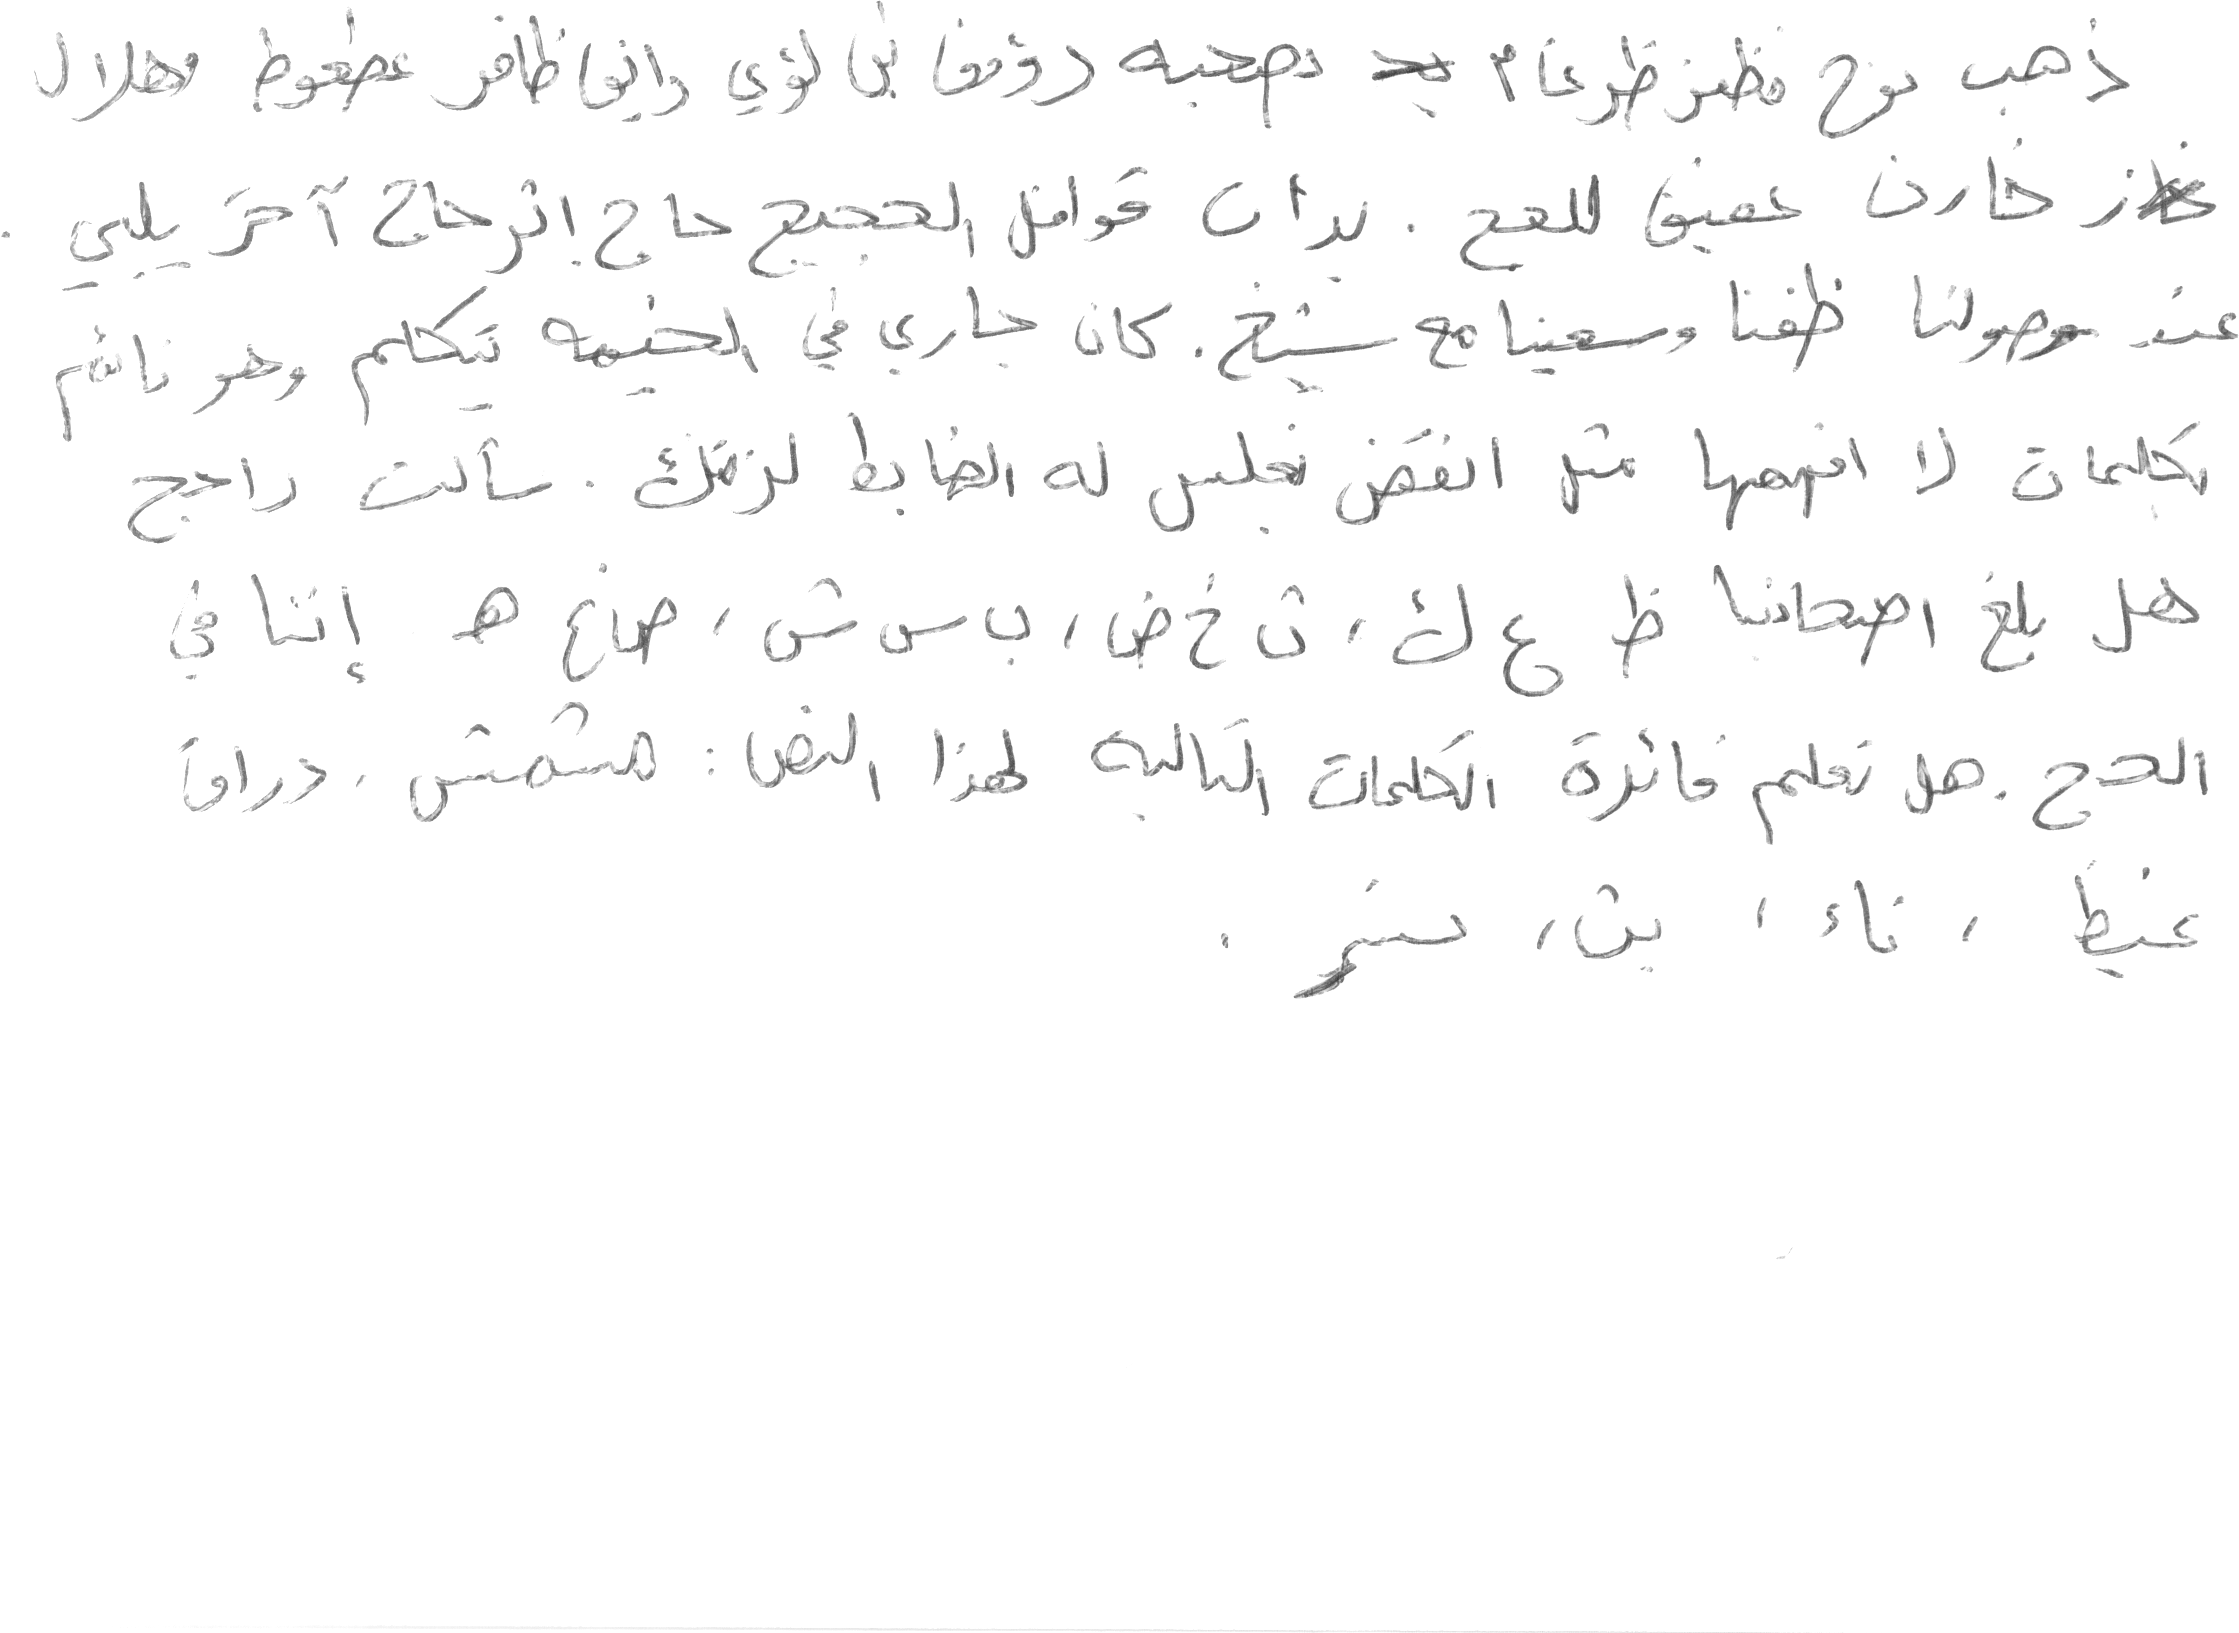 ذهب نوح مظفر ضرغام بصحبه رؤوف بن لؤي رايق ظافر عطعوط وهلال
خازن عفيف للحج . بدات قوافل الحجيج حاج إثر حاج آخر يلبي .
عند وصولنا طفنا وسعينا مع شيخ . كان جاري في الخيمه يتكلم وهو نائم
بكلمات لا افهمها مثل انقض تجلس له الضابط لزقتك . سألت راجح
هل بلغ اصحابنا ظ ع ك ، ث خ ض ، ب س ش ، ص غ هـ إننا في
الحج . هل تعلم فائزة الكلمات التاليه لهذا النص : مشمش ، دراق
غيظ ، ناء ، يث ، سنمر .